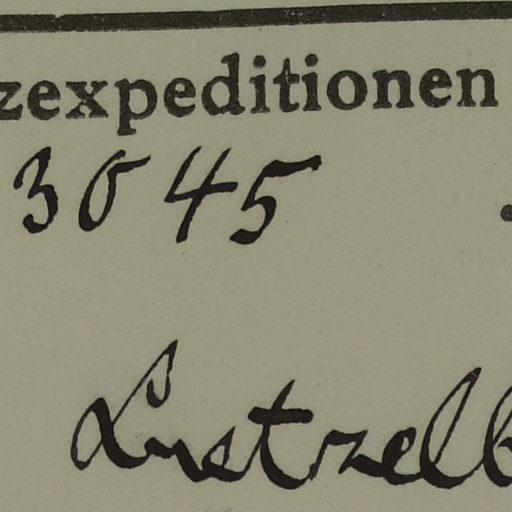 zexpeditionen
3045
Lustzelb